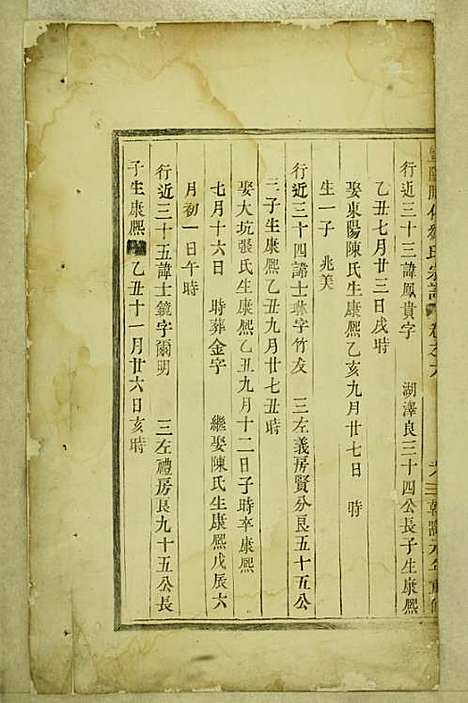 行近三十三諱鳳貴字　湖澤良三十四公長子生康熙
乙丑七月廿三日戌時
娶東陽陳氏生康熙乙亥九月廿七日　時
生一子　兆美
行近三十四諱士琳字竹友　三左義房賢分良五十五公
三子生康熙乙丑九月廿七丑時
娶大坑張氏生康熙乙丑九月十二日子時卒康熙
七月十六日　時葬金字　繼娶陳氏生康熙戊辰六
月初一日午時
行近三十五諱士鏡字爾明　三左禮房良九十五公長
子生康熙乙丑十一月廿六日亥時